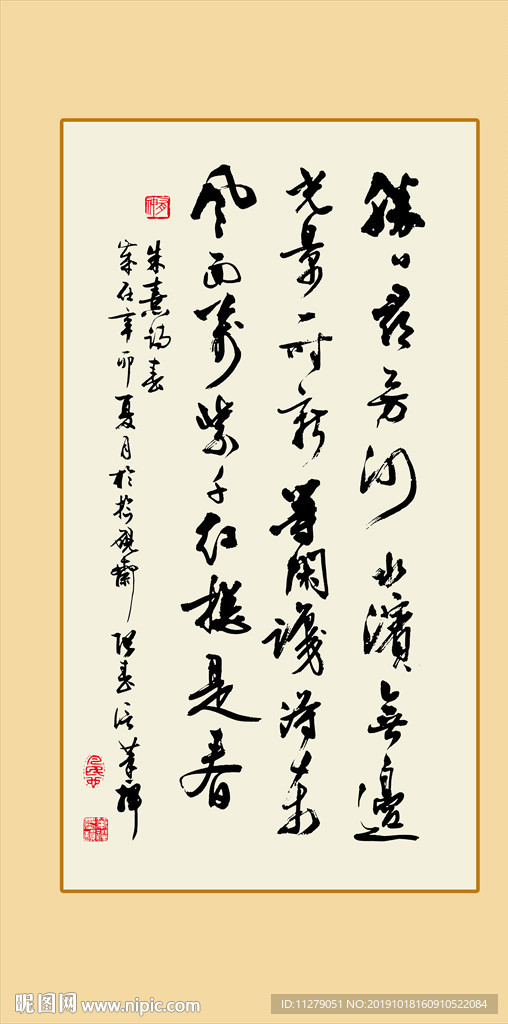 勝日尋芳泗水濱無邊
光景一時新等閑識得東
風面萬紫千紅總是春
朱熹詩春
歲在辛卯夏月於拾硯齋
昵图网 www.nipic.com
ID:11279051 NO:20191018160910522084